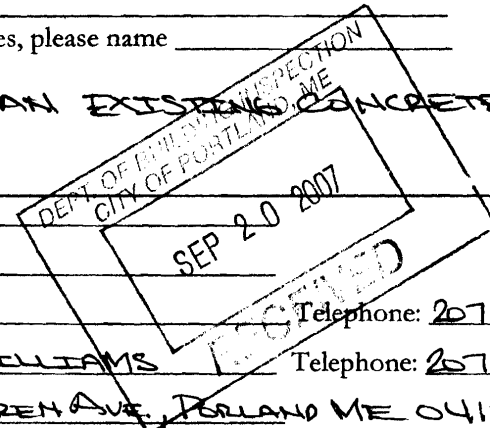 es, please name
AN EXISTING CONCRETE
DEPT. OF BUILDING INSPECTION
CITY OF PORTLAND, ME
SEP 20 2007
RECEIVED
Telephone: 207
ILLIAMS Telephone: 207
REN AVE., PORLAND ME 041